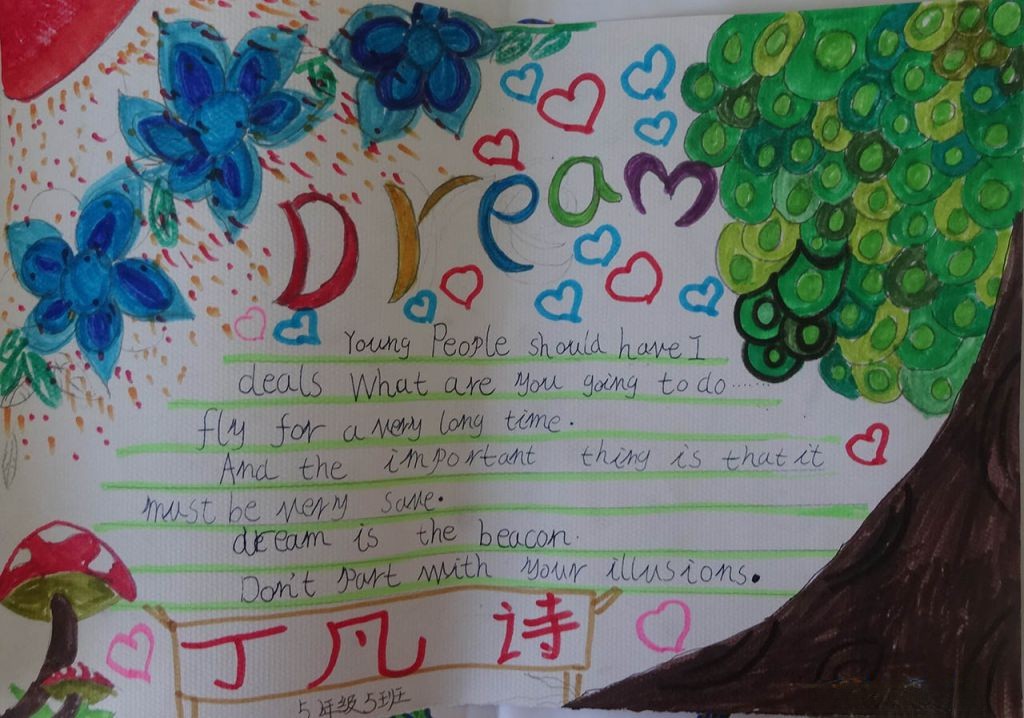 Dream
Young People should have I
deals What are you going to do......
fly for a very long time.
And the important thing is that it
must be very save.
dream is the beacon.
Don't Part with your illusions.
丁凡诗
5年级5班